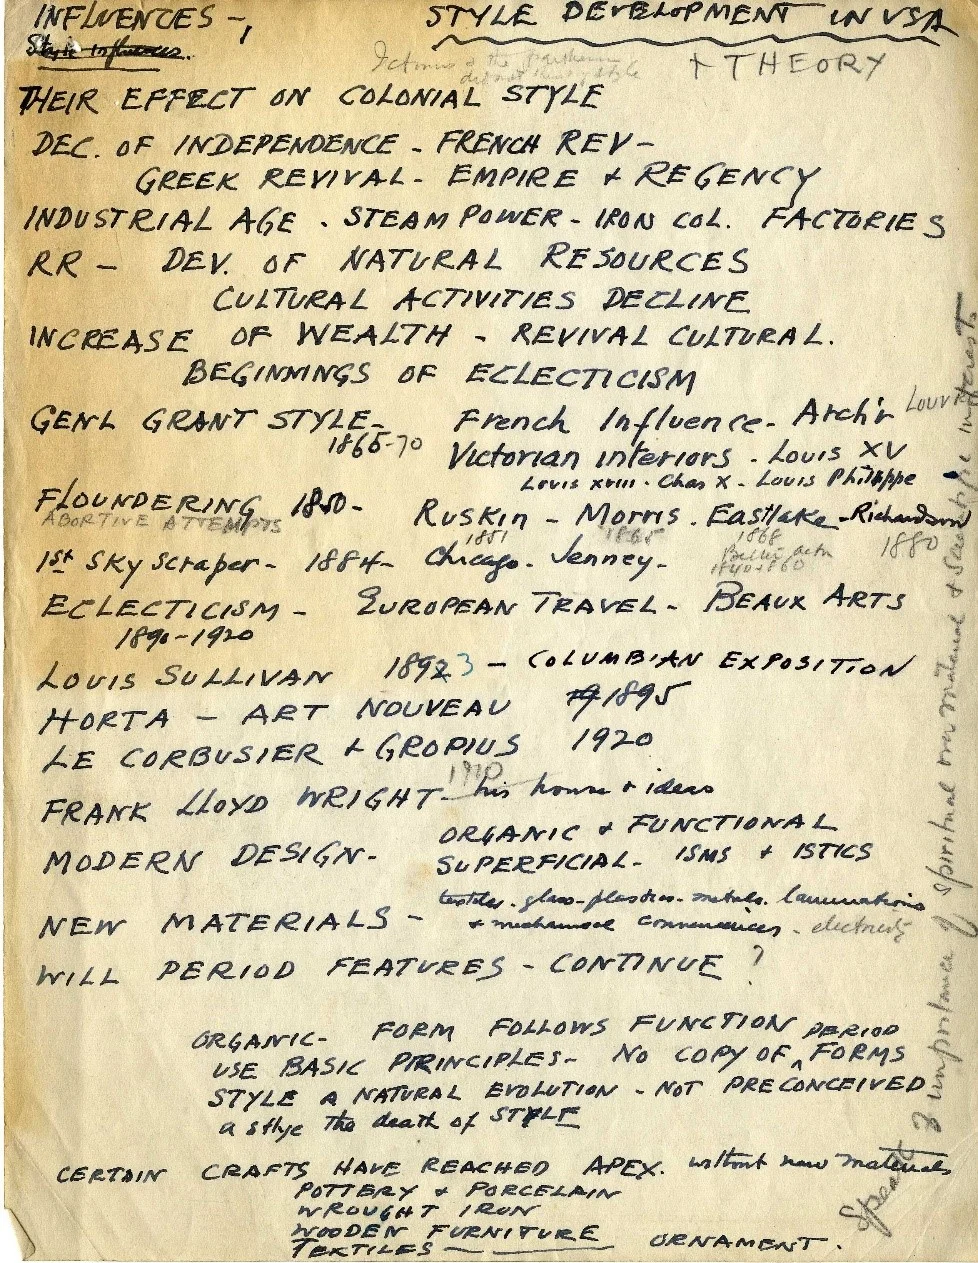 INFLUENCES -, STYLE DEVELOPMENT IN USA
Style influences.
Ictinus & the Parthenon
+ THEORY
THEIR EFFECT ON COLONIAL STYLE
DEC. OF INDEPENDENCE - FRENCH REV -
GREEK REVIVAL - EMPIRE & REGENCY
INDUSTRIAL AGE . STEAM POWER - IRON COL. FACTORIES
RR - DEV. OF NATURAL RESOURCES
CULTURAL ACTIVITIES DECLINE
INCREASE OF WEALTH - REVIVAL CULTURAL.
BEGINNINGS OF ECLECTICISM
GENL GRANT STYLE - French Influence - Arch'r Louvre
1865-70 Victorian interiors - Louis XV
Louis XVIII - Chas X - Louis Philippe
FLOUNDERING 1850 - Ruskin - Morris . Eastlake - Richardson
ABORTIVE ATTEMPTS 1851 1865 1868 1880
1st Sky Scraper - 1884 - Chicago - Jenney -
1840-1860
ECLECTICISM - EUROPEAN TRAVEL - BEAUX ARTS
1890-1920
LOUIS SULLIVAN 1893 - COLUMBIAN EXPOSITION
HORTA - ART NOUVEAU 1895
LE CORBUSIER & GROPIUS 1920
1910
FRANK LLOYD WRIGHT - his house & ideas
ORGANIC & FUNCTIONAL
MODERN DESIGN - SUPERFICIAL - ISMS & ISTICS
textiles - glass - plastics - metals. laminations
NEW MATERIALS - & mechanical conveniences - electricity
WILL PERIOD FEATURES - CONTINUE ?
ORGANIC - FORM FOLLOWS FUNCTION
USE BASIC PRINCIPLES - NO COPY OF PERIOD FORMS
STYLE A NATURAL EVOLUTION - NOT PRECONCEIVED
a style the death of STYLE
CERTAIN CRAFTS HAVE REACHED APEX. without new materials
POTTERY & PORCELAIN
WROUGHT IRON
WOODEN FURNITURE
TEXTILES - ORNAMENT.
Speak of importance of spiritual over material & scientific interests